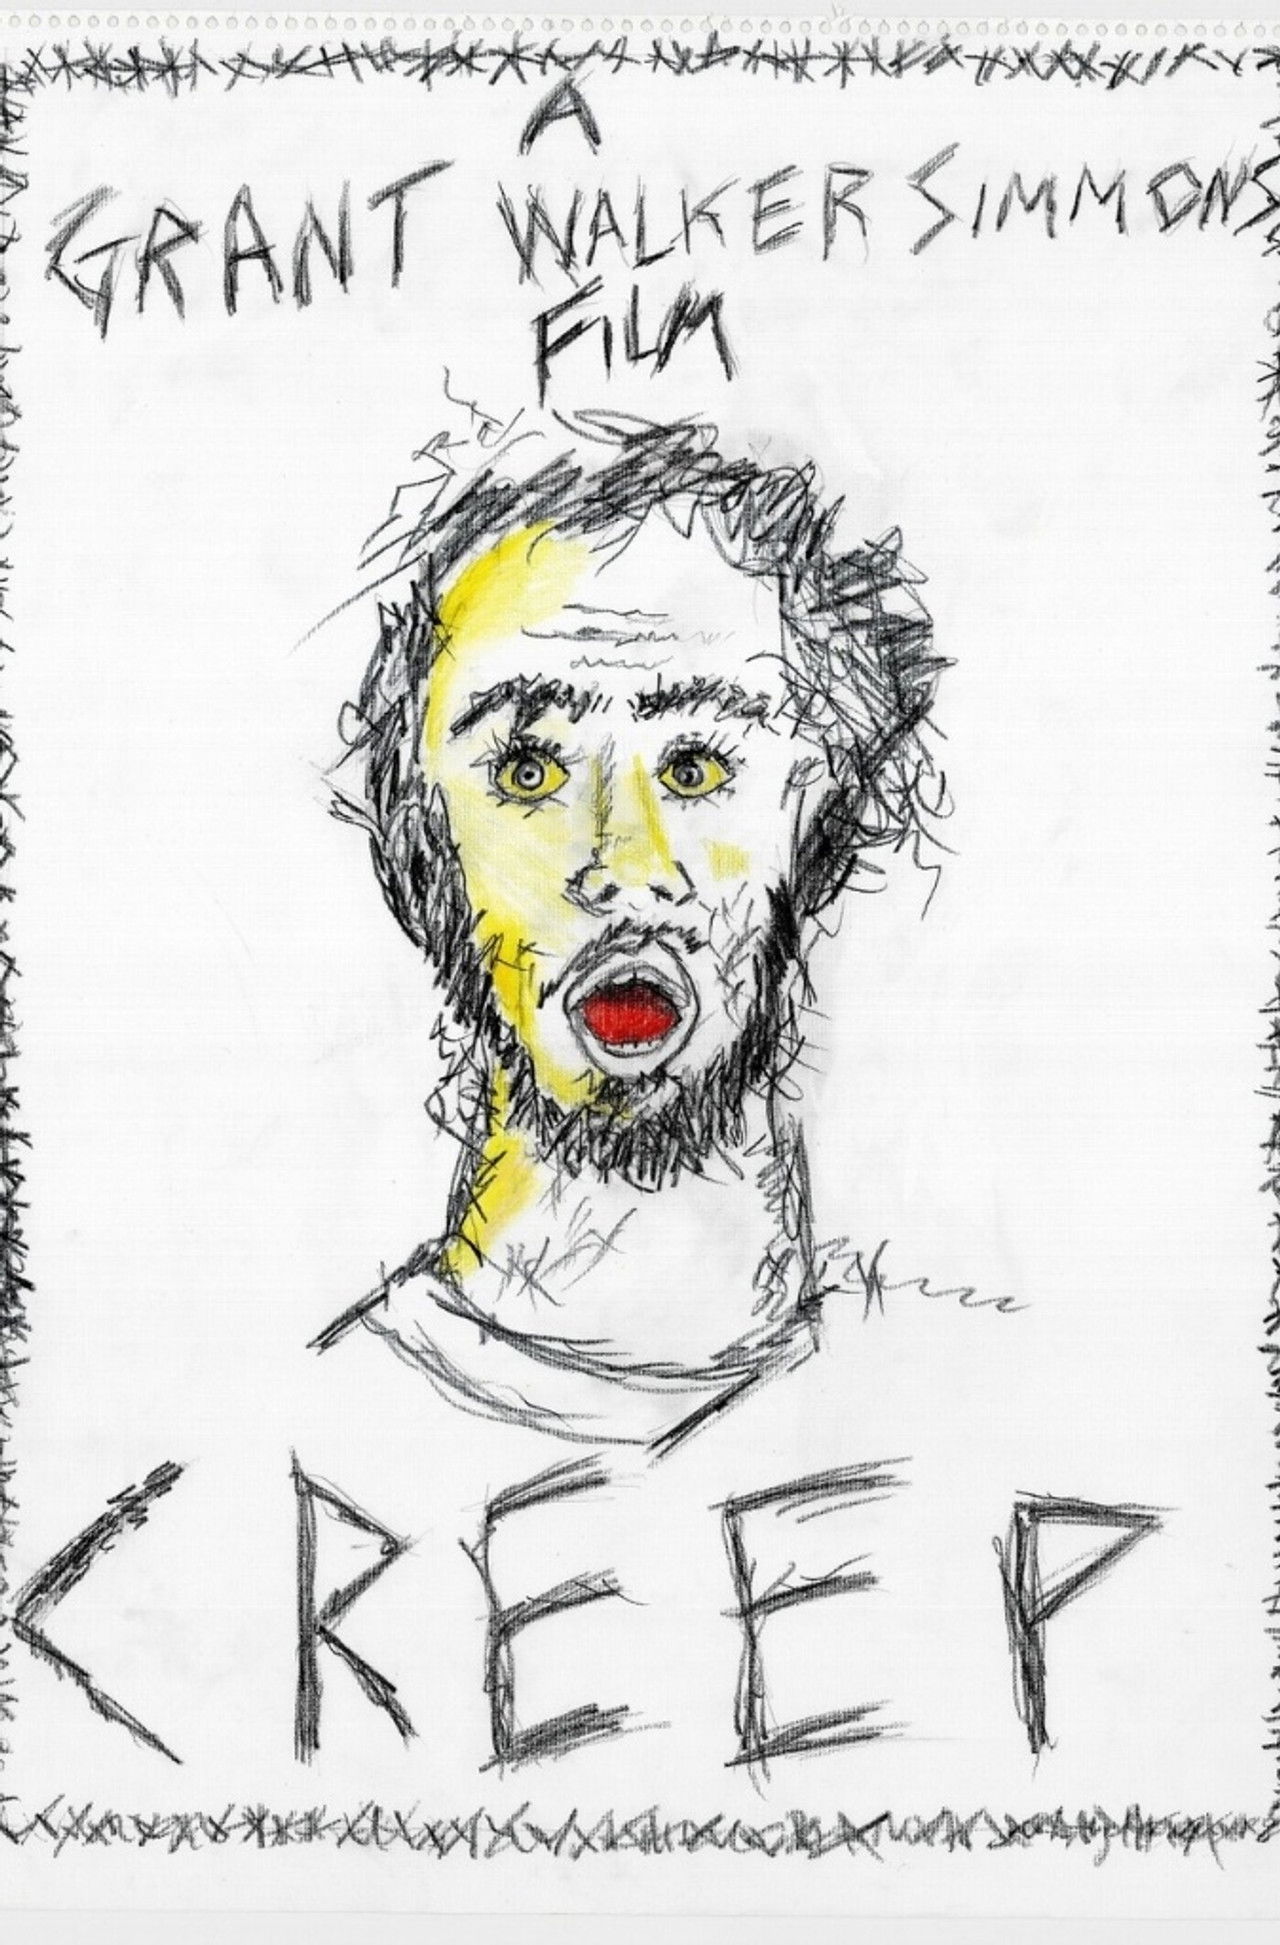 A
GRANT WALKER SIMMONS
FILM
CREEP